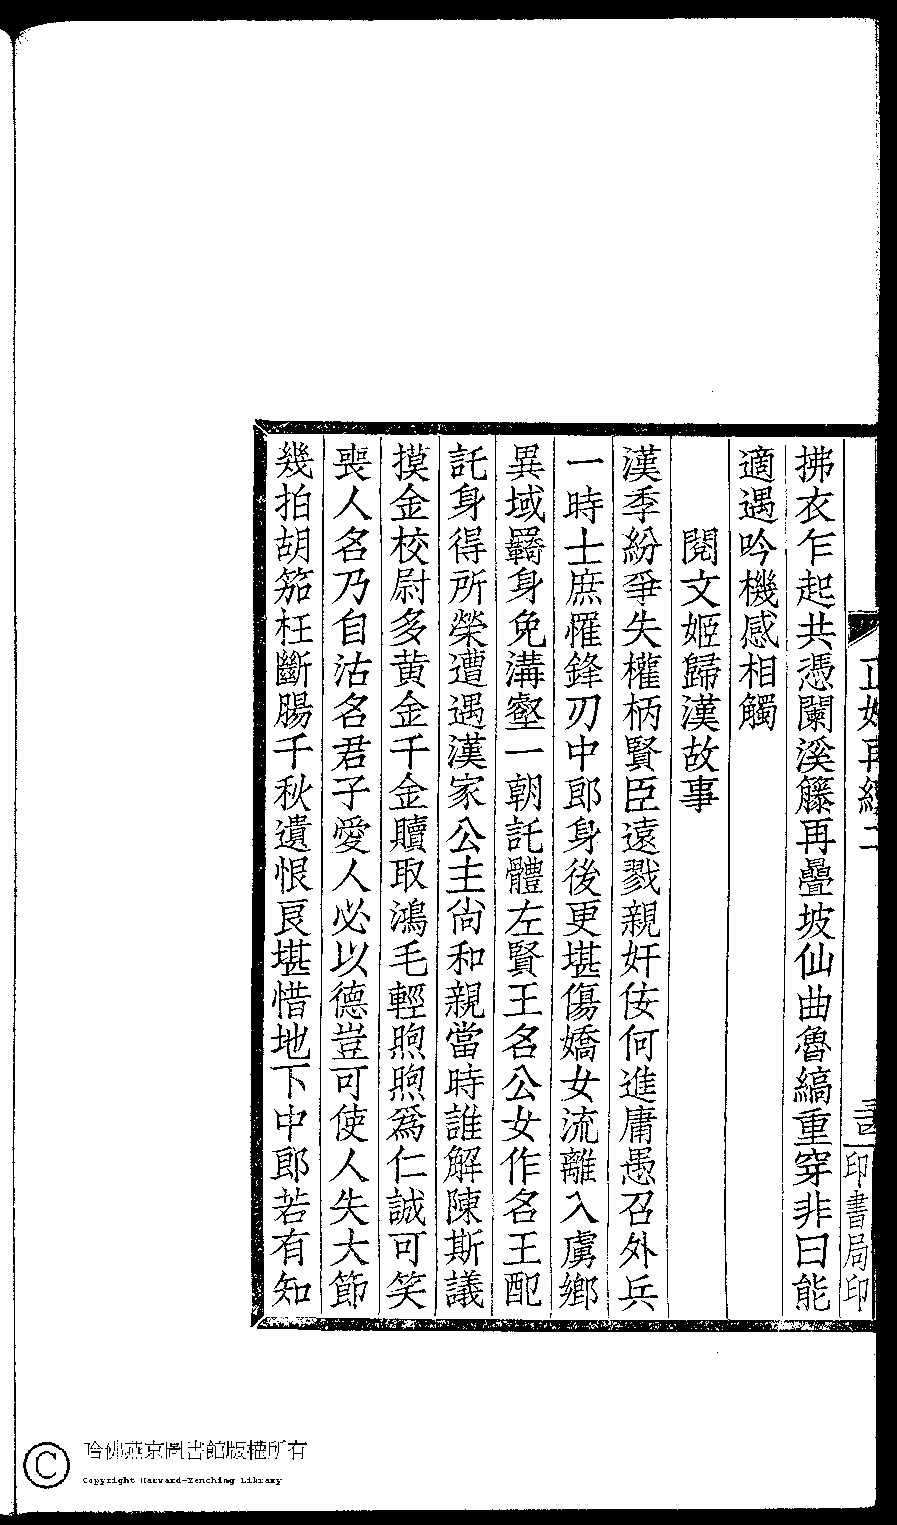 正始再續二
三
印書局印
拂衣乍起共憑闌溪籐再疊坡仙曲魯縞重穿非曰能
適遇吟機感相觸
閱文姬歸漢故事
漢季紛爭失權柄賢臣遠戮親奸佞何進庸愚召外兵
一時士庶罹鋒刃中郎身後更堪傷嬌女流離入虜鄉
異域羈身免溝壑一朝託體左賢王名公女作名王配
託身得所榮遭遇漢家公主尙和親當時誰解陳斯議
摸金校尉多黃金千金贖取鴻毛輕煦煦爲仁誠可笑
喪人名乃自沽名君子愛人必以德豈可使人失大節
幾拍胡笳枉斷腸千秋遺恨良堪惜地下中郎若有知
哈佛燕京圖書館版權所有
Copyright Harvard-Yenching Library